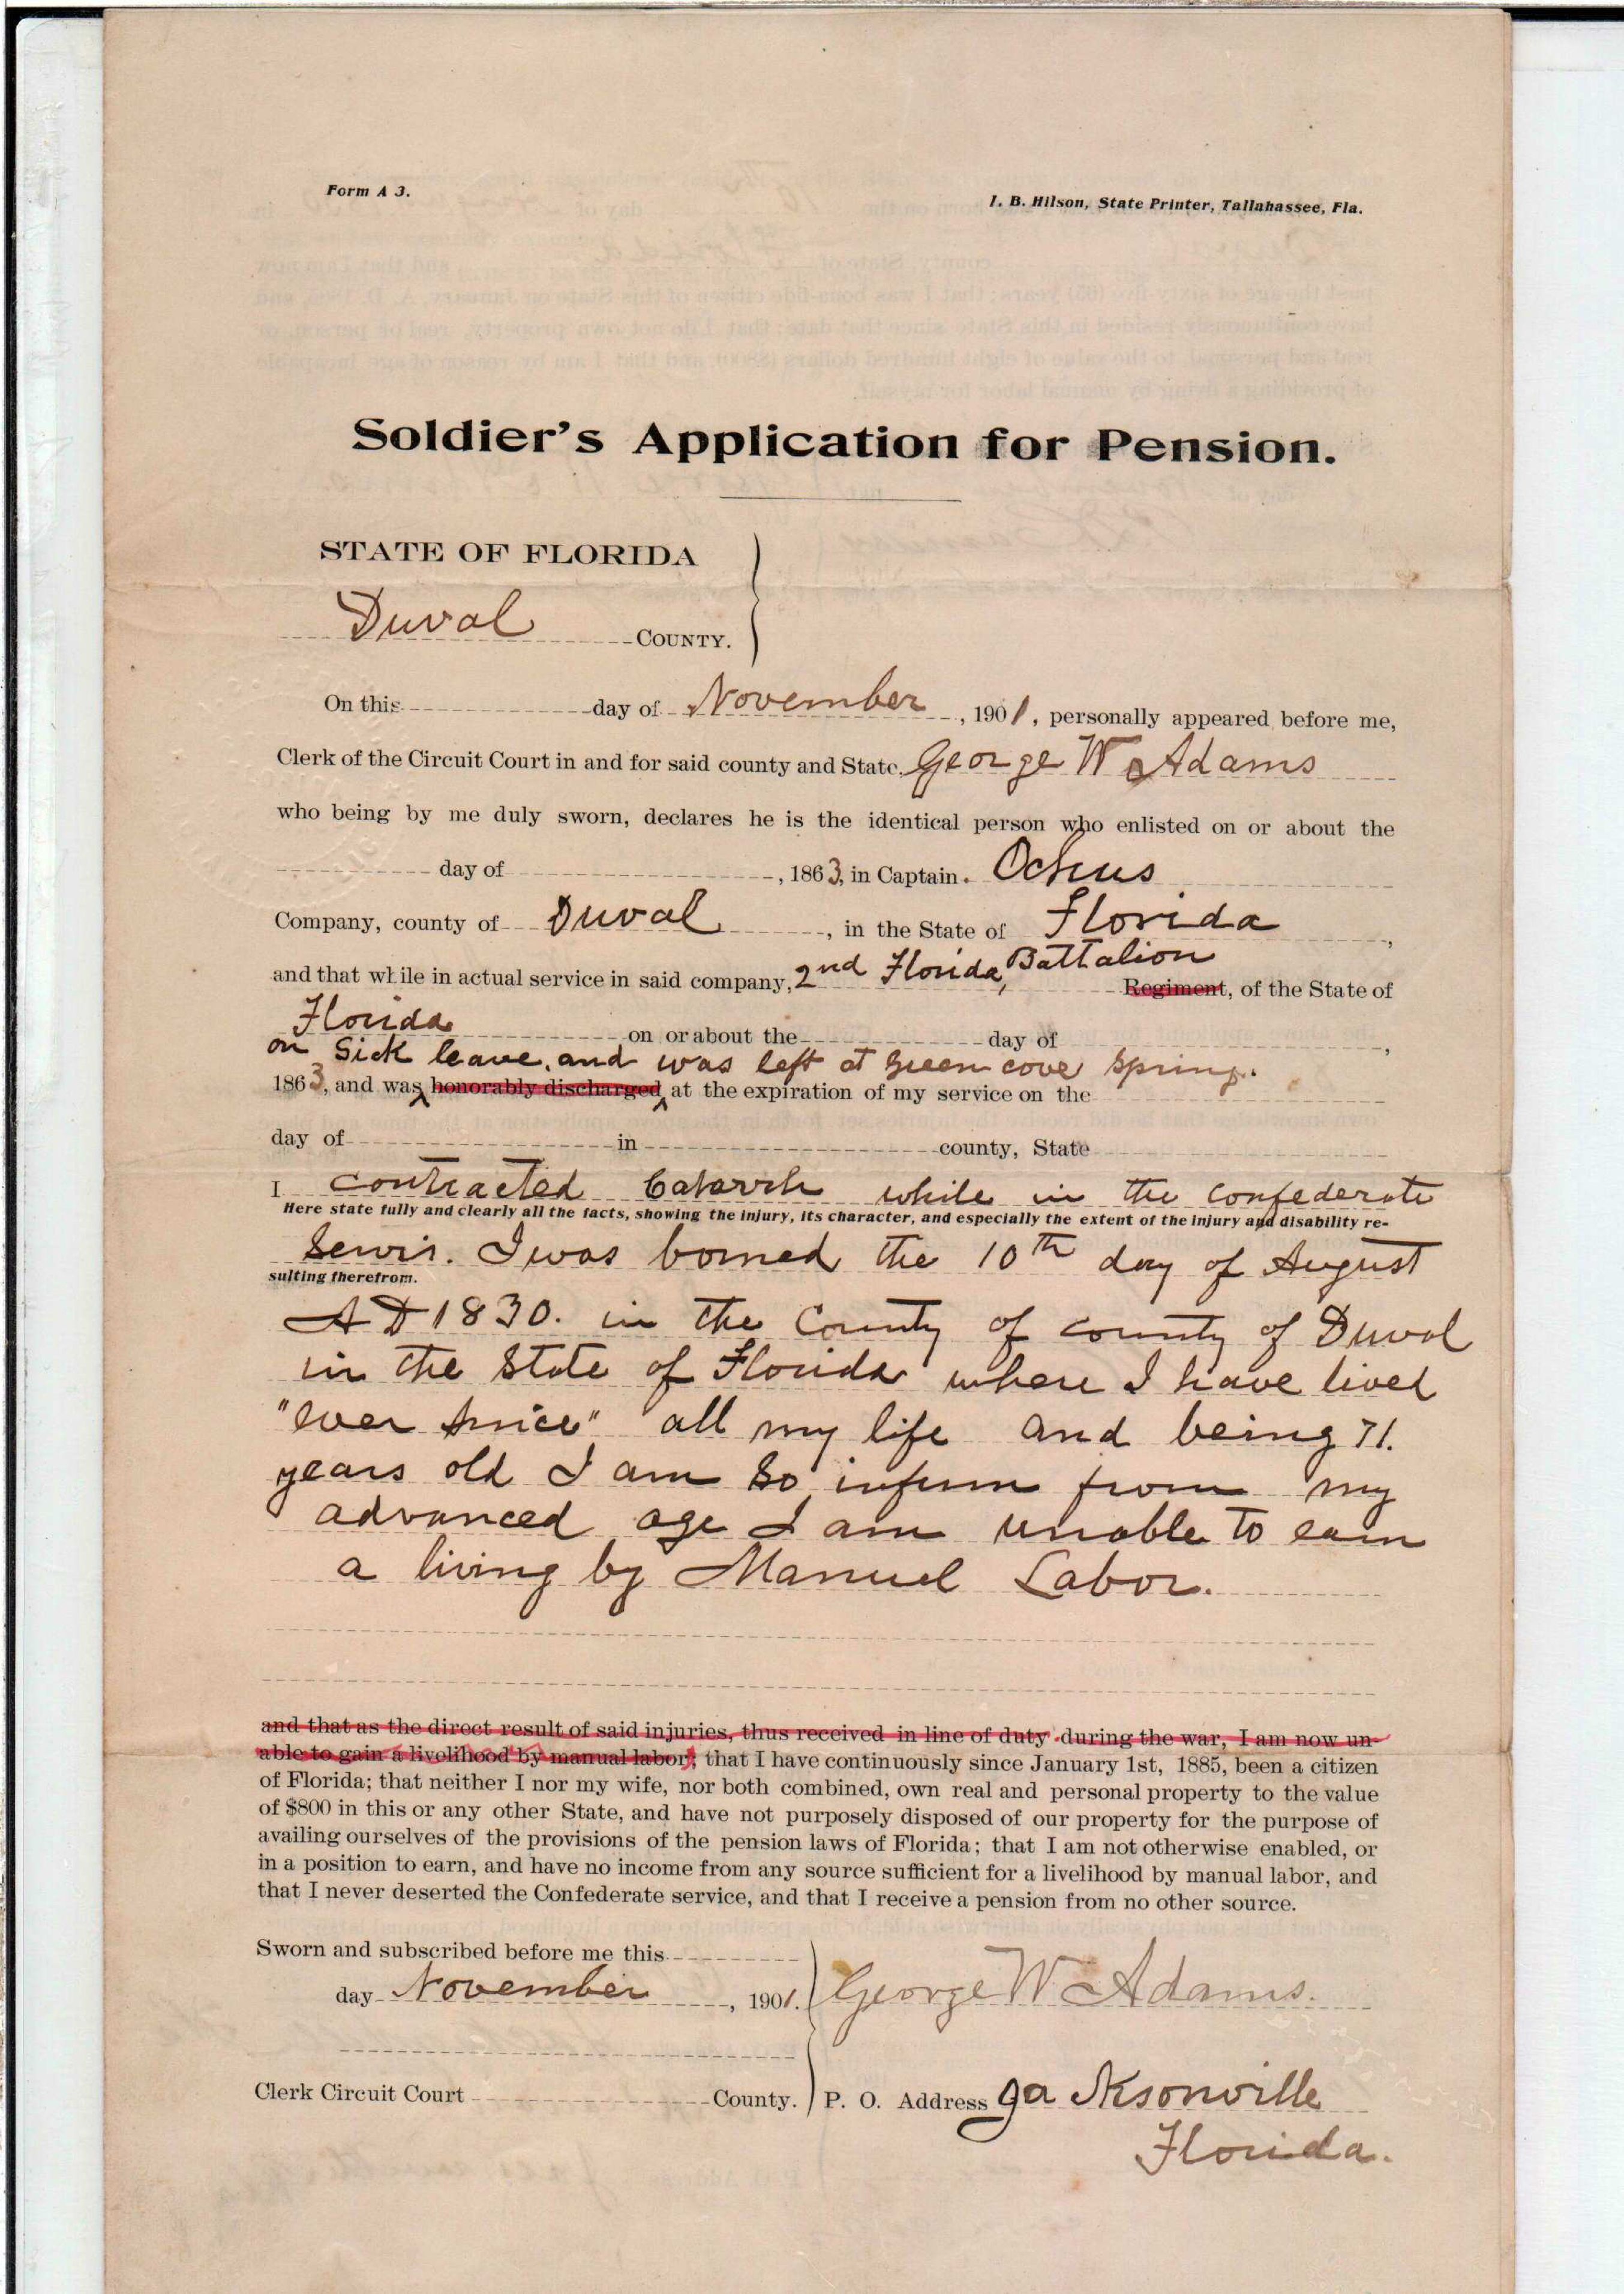 Form A 3.
I. B. Hilson, State Printer, Tallahassee, Fla.
Soldier's Application for Pension.
STATE OF FLORIDA
Duval COUNTY.
On this day of November, 1901, personally appeared before me,
Clerk of the Circuit Court in and for said county and State, George W Adams
who being by me duly sworn, declares he is the identical person who enlisted on or about the
day of , 1863, in Captain Ochus
Company, county of Duval, in the State of Florida,
and that while in actual service in said company, 2nd Florida, Battalion Regiment, of the State of
Florida on or about the day of ,
on Sick leave, and was left at Green cove Spring.
1863, and was honorably discharged at the expiration of my service on the
day of in county, State
I contracted Catarrh while in the Confederate
Here state fully and clearly all the facts, showing the injury, its character, and especially the extent of the injury and disability re-
Servis. I was borned the 10th day of August
sulting therefrom.
A D 1830. in the County of county of Duval
in the State of Florida where I have lived
"ever since" all my life and being 71.
years old I am So infirm from my
advanced age I am unable to earn
a living by Manuel Labor.
and that as the direct result of said injuries, thus received in line of duty during the war, I am now un-
able to gain a livelihood by manual labor; that I have continuously since January 1st, 1885, been a citizen
of Florida; that neither I nor my wife, nor both combined, own real and personal property to the value
of $800 in this or any other State, and have not purposely disposed of our property for the purpose of
availing ourselves of the provisions of the pension laws of Florida; that I am not otherwise enabled, or
in a position to earn, and have no income from any source sufficient for a livelihood by manual labor, and
that I never deserted the Confederate service, and that I receive a pension from no other source.
Sworn and subscribed before me this
day November, 1901. George W Adams.
Clerk Circuit Court County. P. O. Address Jacksonville
Florida.